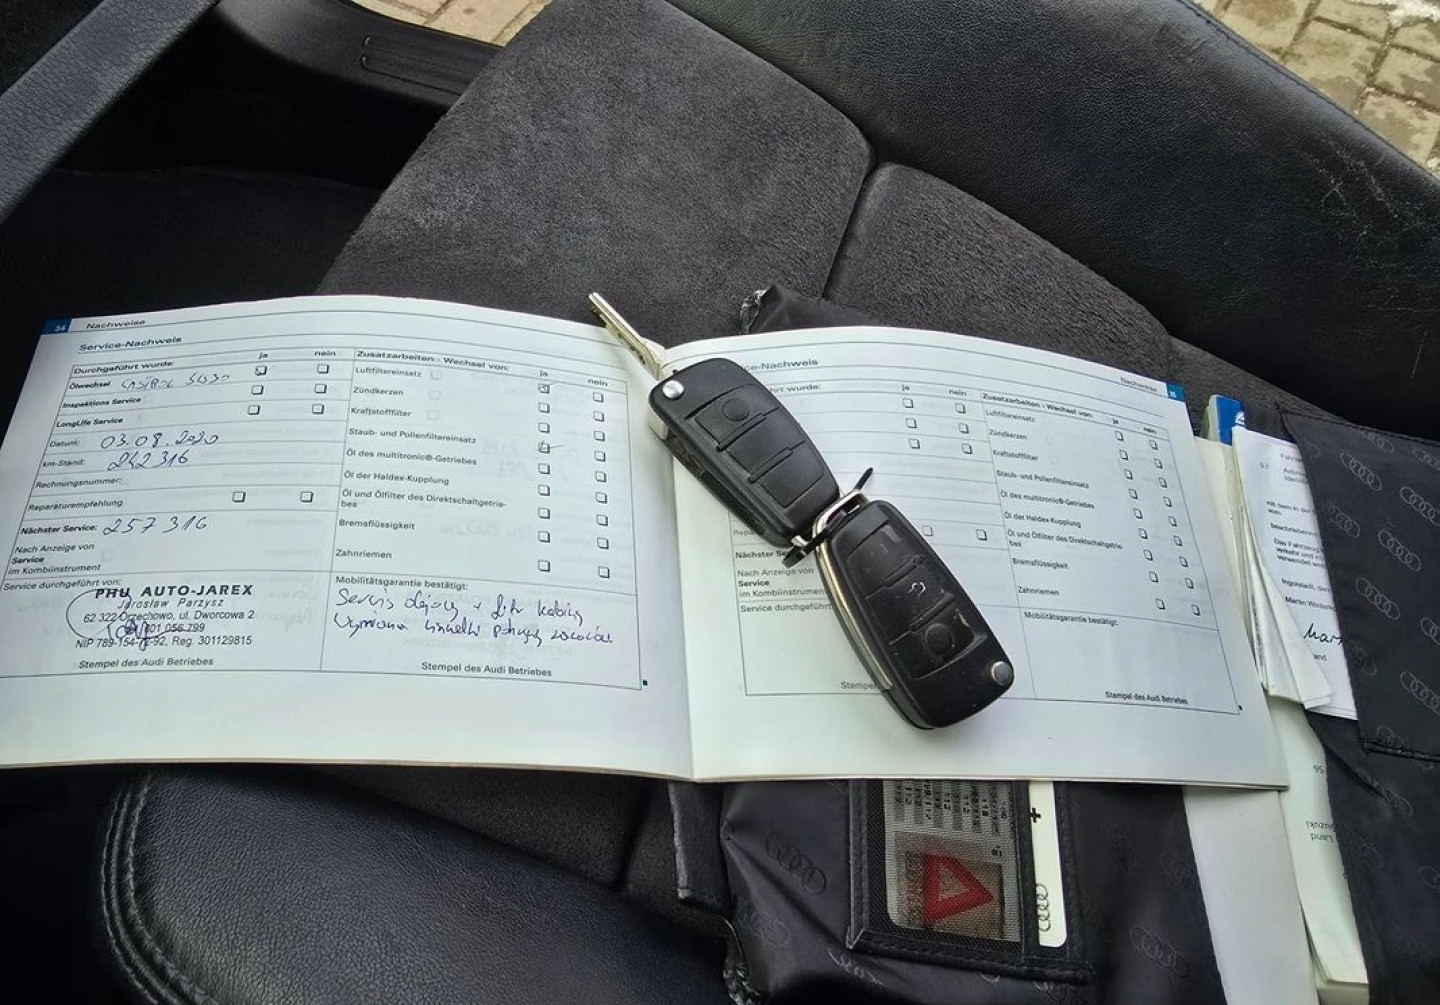 34 Nachweise
Service-Nachweis
Durchgeführt wurde: ja nein
Ölwechsel CASTROL 5W30
Inspektions Service
LongLife Service
Datum: 03.08.2020
km-Stand: 242 316
Rechnungsnummer:
Reparaturempfehlung
Nächster Service: 257 316
Nach Anzeige von
Service
im Kombiinstrument
Service durchgeführt von:
PHU AUTO-JAREX
Jarosław Parzysz
62 322 Orzechowo, ul. Dworcowa 2
601 056 799
NIP 789-154-72-92, Reg. 301129815
Stempel des Audi Betriebes
Zusatzarbeiten - Wechsel von: ja nein
Luftfiltereinsatz
Zündkerzen
Kraftstofffilter
Staub- und Pollenfiltereinsatz
Öl des multitronic®-Getriebes
Öl der Haldex-Kupplung
Öl und Ölfilter des Direktschaltgetrie-
bes
Bremsflüssigkeit
Zahnriemen
Mobilitätsgarantie bestätigt:
Serwis olejowy + filtr kabiny
Wymiana
Stempel des Audi Betriebes
Nachweise 35
ce-Nachweis
hrt wurde: ja nein
Repa
Nächster Se
Nach Anzeige
Service
im Kombiinstrume
Service durchgeführt
Stempel
Zusatzarbeiten - Wechsel von: ja nein
Luftfiltereinsatz
Zündkerzen
Kraftstofffilter
Staub- und Pollenfiltereinsatz
Öl des multitronic®-Getriebes
Öl der Haldex-Kupplung
Öl und Ölfilter des Direktschaltgetrie-
bes
Bremsflüssigkeit
Zahnriemen
Mobilitätsgarantie bestätigt:
Stempel des Audi Betriebes
Das Fahrzeug
Ingolstadt, den
Martin Winterko
Land